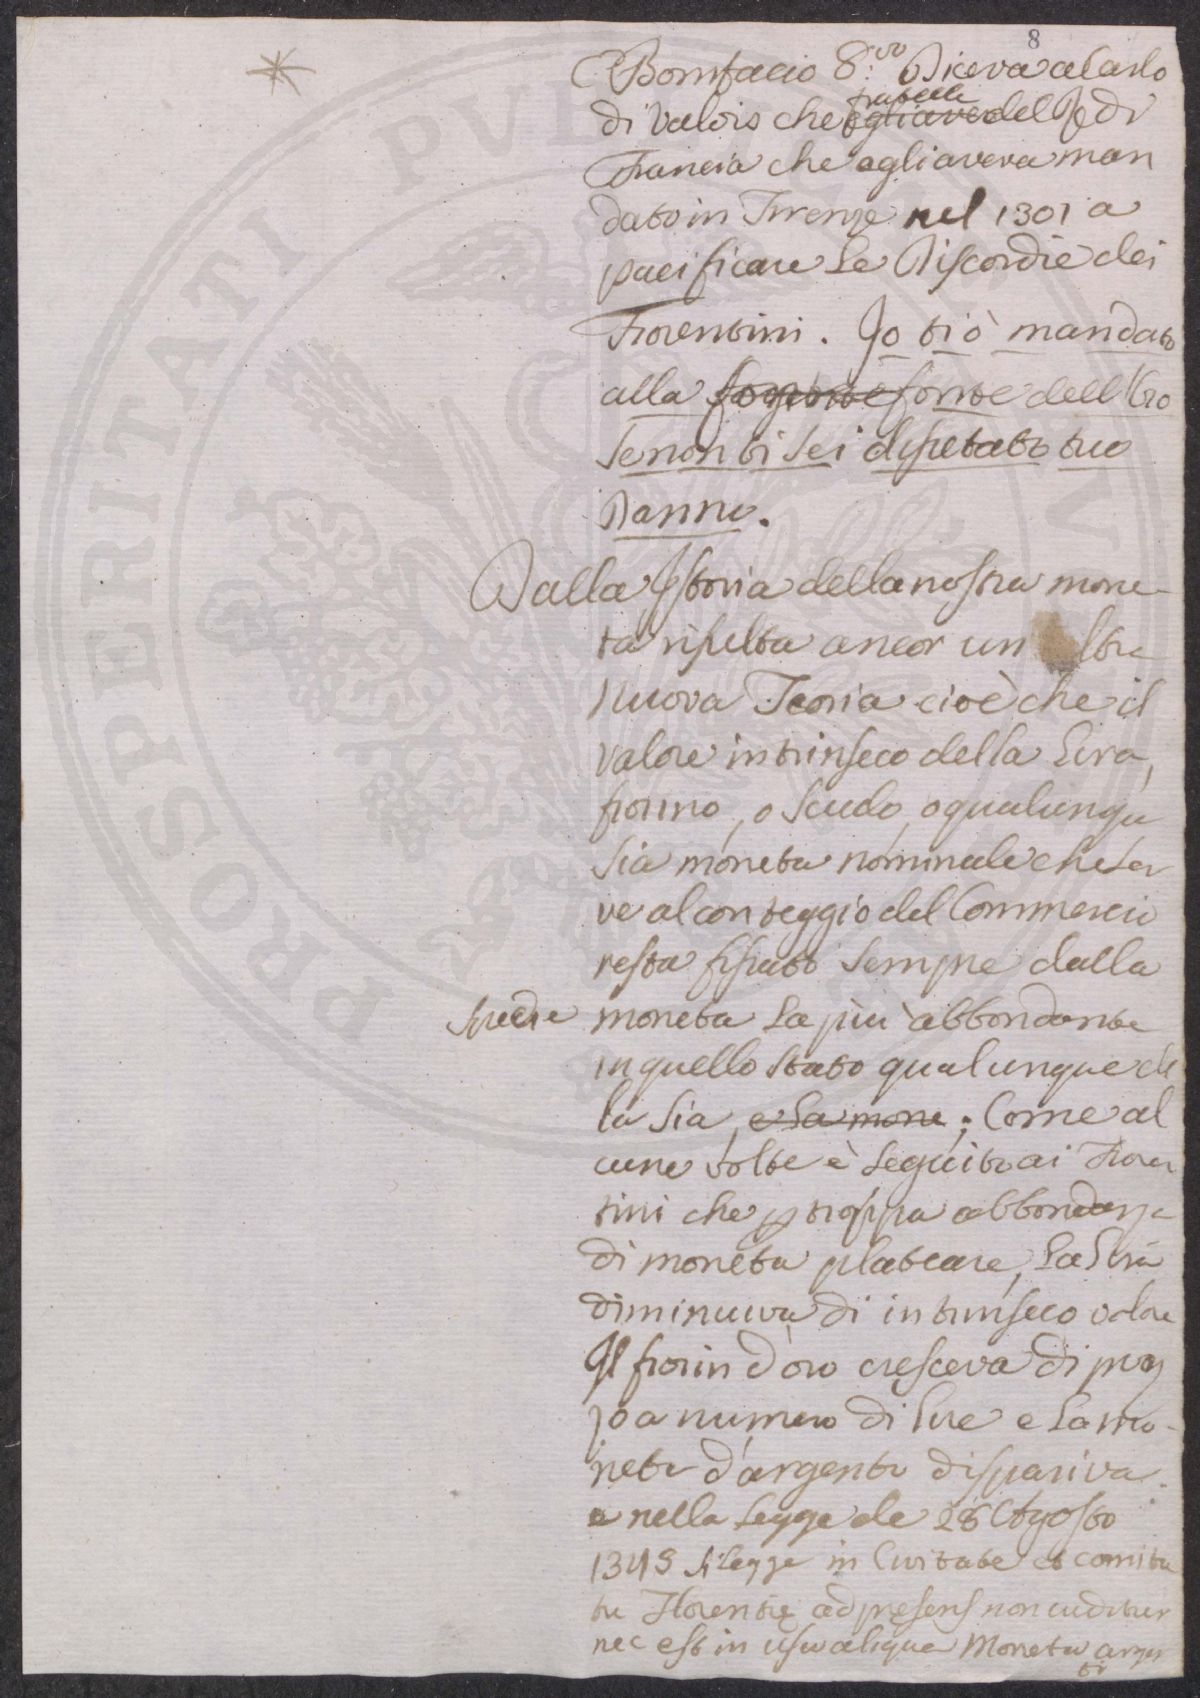 8
Bonifacio 8.vo Diceva a Carlo
di Valois che fratello egli aveva del Re di
Francia che egli aveva man
dato in Firenze nel 1301 a
pacificare le Discordie dei
Fiorentini. Io ti ò mandato
alla fonte dell'Oro
se non ti sei disetato tuo
Danno.
Dalla Istoria della nostra mone-
ta risulta ancor un altra
nuova Teoria cioè che il
valore intrinseco della Lira,
fiorino, o Scudo, o qualunqu
sia moneta nominale che ser
ve al conteggio del Commercio
resta fissato sempre dalla
moneta la più abbondante
in quello stato qualunque el
la sia, e la mone; Come al
cune volte è seguito ai Fioren
tini che p troppa abbondanza
di moneta plateale, la Lira
diminuiva di intrinseco valore
Il fiorin d'oro cresceva di prez
zo a numero di lire e la mo-
neta d'argento dispariva.
e nella Legge de 28 Agosto
1345 si legge in Civitate et comita
tu Florentię ad pręsens non cuditur
nec est in usu aliqua Moneta argen
ti